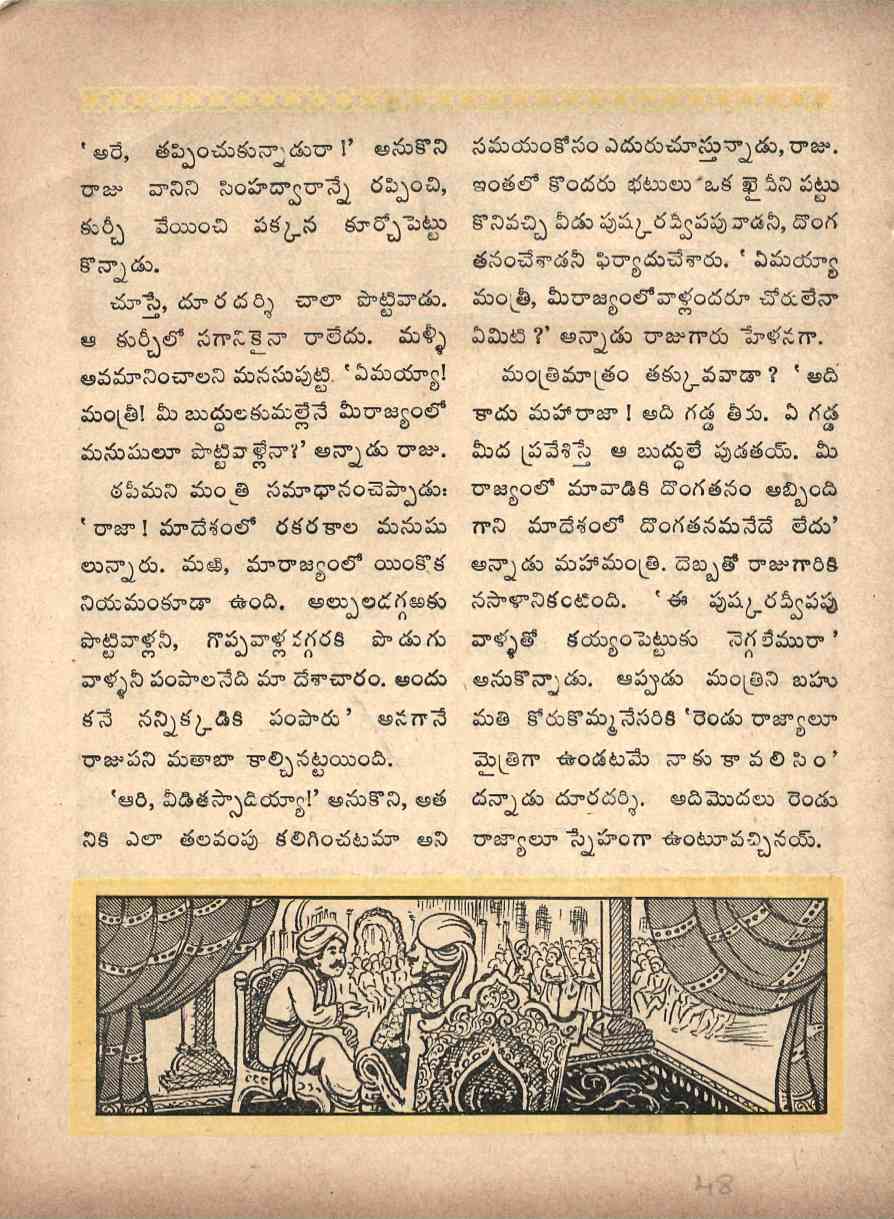 ‘ అరే, తప్పించుకున్నాడురా !’ అనుకొని
రాజు వానిని సింహద్వారాన్నే రప్పించి,
కుర్చీ వేయించి పక్కన కూర్చోపెట్టు
కొన్నాడు.
చూస్తే, దూరదర్శి చాలా పొట్టివాడు.
ఆ కుర్చీలో సగానికైనా రాలేదు. మళ్ళీ
అవమానించాలని మనసుపుట్టి. ‘ఏమయ్యా!
మంత్రీ! మీ బుద్ధులకుమల్లేనే మీరాజ్యంలో
మనుషులూ పొట్టివాళ్లేనా?’ అన్నాడు రాజు.
ఠపీమని మంత్రి సమాధానంచెప్పాడు:
‘రాజా! మాదేశంలో రకరకాల మనుషు
లున్నారు. మఱి, మారాజ్యంలో యింకొక
నియమంకూడా ఉంది. అల్పులదగ్గఱకు
పొట్టివాళ్లనీ, గొప్పవాళ్లదగ్గరకి పొడుగు
వాళ్ళనీ పంపాలనేది మా దేశాచారం. అందు
కనే నన్నిక్కడికి పంపారు’ అనగానే
రాజుపని మతాబా కాల్చినట్టయింది.
‘ఆరి, వీడితస్సాదియ్యా!’ అనుకొని, అత
నికి ఎలా తలవంపు కలిగించటమా అని
సమయంకోసం ఎదురుచూస్తున్నాడు, రాజు.
ఇంతలో కొందరు భటులు ఒక ఖైదీని పట్టు
కొనివచ్చి వీడు పుష్కరద్వీపపువాడనీ, దొంగ
తనంచేశాడనీ ఫిర్యాదుచేశారు. ‘ ఏమయ్యా
మంత్రీ, మీరాజ్యంలోవాళ్లందరూ చోరులేనా
ఏమిటి ?’ అన్నాడు రాజుగారు హేళనగా.
మంత్రిమాత్రం తక్కువవాడా ? ‘ అది
కాదు మహారాజా ! అది గడ్డ తీరు. ఏ గడ్డ
మీద ప్రవేశిస్తే ఆ బుద్ధులే పుడతయ్. మీ
రాజ్యంలో మావాడికి దొంగతనం అబ్బింది
గాని మాదేశంలో దొంగతనమనేదే లేదు’
అన్నాడు మహామంత్రి. దెబ్బతో రాజుగారికి
నసాళానికంటింది. ‘ ఈ పుష్కరద్వీపపు
వాళ్ళతో కయ్యంపెట్టుకు నెగ్గలేమురా ’
అనుకొన్నాడు. అప్పుడు మంత్రిని బహు
మతి కోరుకొమ్మనేసరికి ‘రెండు రాజ్యాలూ
మైత్రిగా ఉండటమే నాకు కావలిసిం’
దన్నాడు దూరదర్శి. అదిమొదలు రెండు
రాజ్యాలూ స్నేహంగా ఉంటూవచ్చినయ్.
48